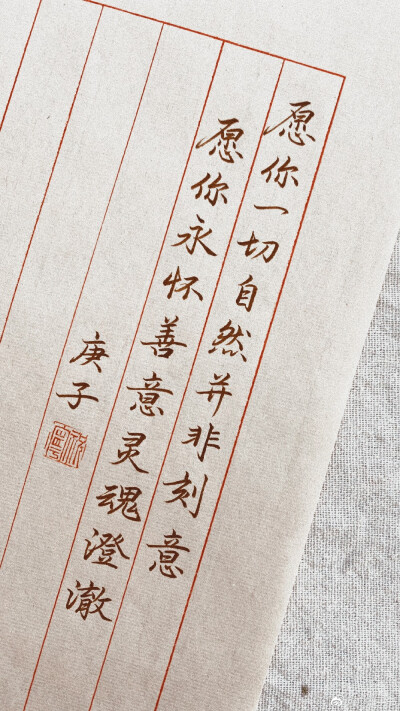 愿你一切自然并非刻意
愿你永怀善意灵魂澄澈
庚子